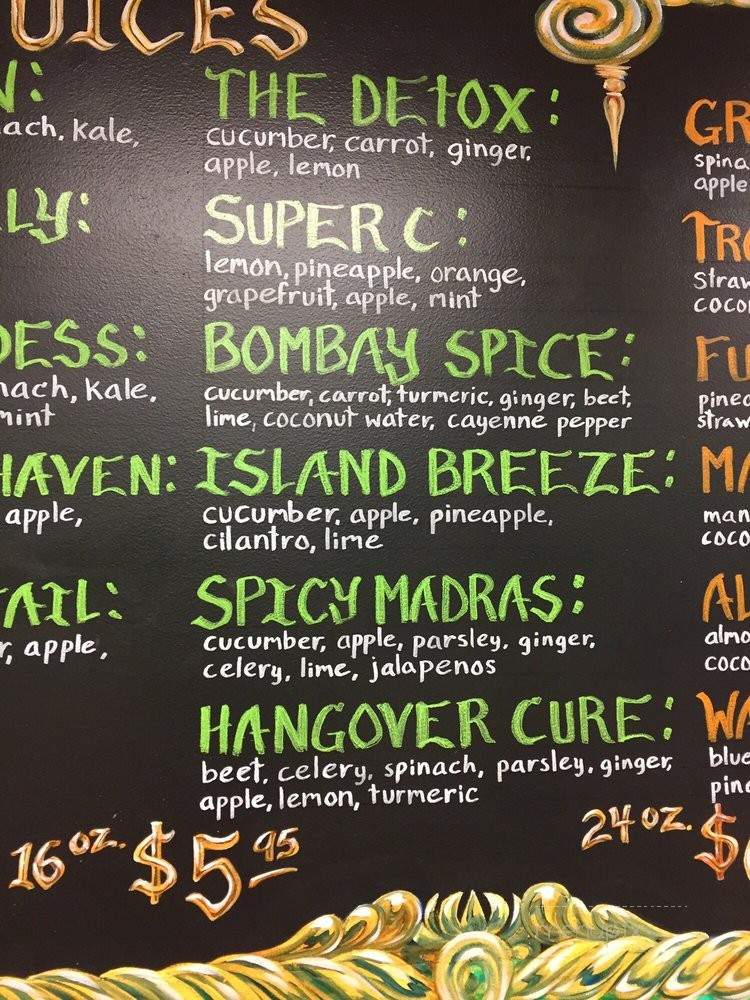 UICES
N:
ach, kale,
LY:
DESS:
nach, kale,
mint
HAVEN:
apple,
AIL:
r, apple,
THE DETOX:
cucumber, carrot, ginger,
apple, lemon
SUPER C:
lemon, pineapple, orange,
grapefruit, apple, mint
BOMBAY SPICE:
cucumber, carrot, turmeric, ginger, beet,
lime, coconut water, cayenne pepper
ISLAND BREEZE:
cucumber, apple, pineapple,
cilantro, lime
SPICY MADRAS:
cucumber, apple, parsley, ginger,
celery, lime, jalapenos
HANGOVER CURE:
beet, celery, spinach, parsley, ginger,
apple, lemon, turmeric
16 oz. $5 95
GR
spina
apple
TRO
straw
coco
FU
pinea
straw
MA
man
coco
AL
almo
coco
WA
blue
pine
24 oz. $